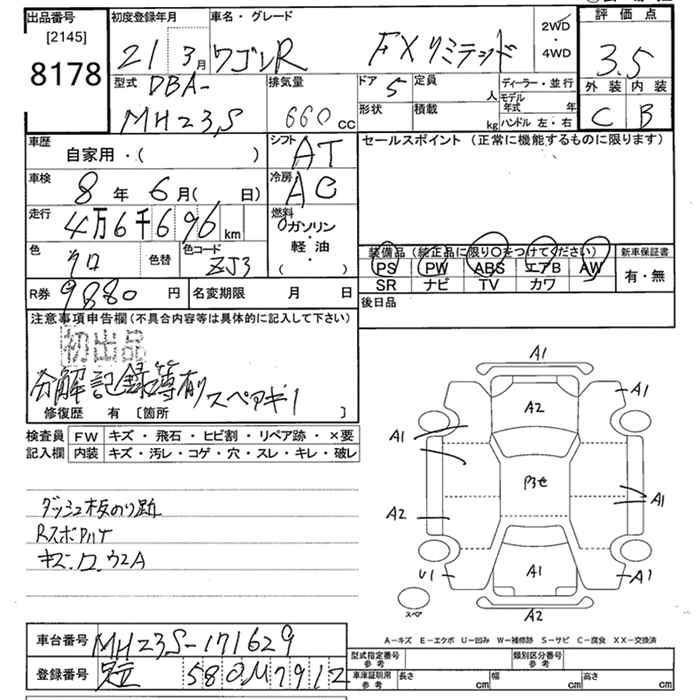 出品番号 [2145] 8178
初度登録年月 21 3月
車名・グレード ワゴンR FXリミテッド
2WD ・ 4WD
評価点 3.5
外装 内装
C B
型式 DBA-
MH23S
排気量 660 cc
ドア 5 定員 人
形状 積載 kg
ディーラー・並行
モデル年式 年
ハンドル 左・右
車歴 自家用・( )
シフト AT
セールスポイント(正常に機能するものに限ります)
車検 8年 6月( 日)
冷房 AC
走行 4万6千696 km
燃料 ガソリン ・ 軽・油 ・ ( )
色 クロ 色替 色コード ZJ3
装備品(純正品に限り○をつけてください)
PS PW ABS エアB AW
SR ナビ TV カワ
新車保証書 有・無
R券 9880 円 名変期限 月 日
後日品
注意事項申告欄(不具合内容等は具体的に記入して下さい)
初出品
分解記録簿有り スペアキ1
修復歴 有 [箇所 ]
検査員記入欄 FW キズ・飛石・ヒビ割・リペア跡・×要
内装 キズ・汚レ・コゲ・穴・スレ・キレ・破レ
ダッシュ板のり跡
RスポアリT
キズ
A1
A2
A1
A1
A2
A1
A1
U1
A1
A1
A2
スペア
A-キズ E-エクボ U-凹み W-補修跡 S-サビ C-腐食 XX-交換済
車台番号 MH23S-171629
登録番号 580 7912
型式指定番号 参考 類別区分番号 参考
車庫証明用 参考 長さ cm 幅 cm 高さ cm